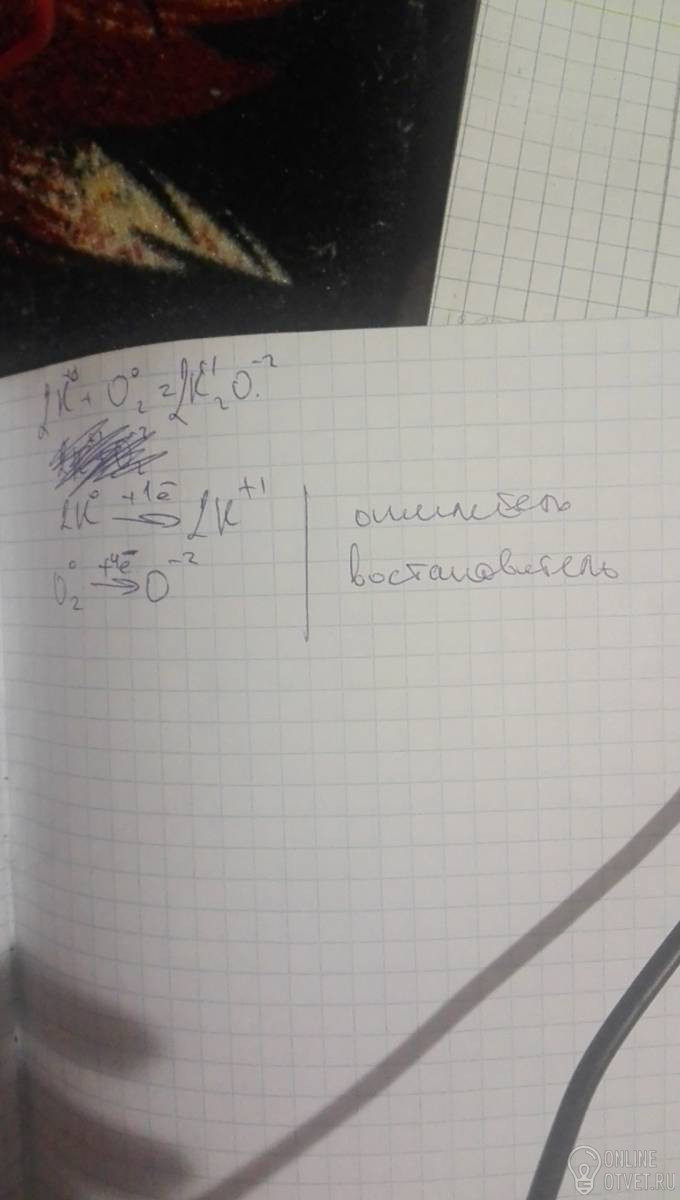 2K⁰ + O₂⁰ = 2K₂⁺¹O⁻²
2K⁰ +1ē → 2K⁺¹ | окислитель
O₂⁰ +4ē → O⁻² | востановитель
ONLINE
OTVET.RU